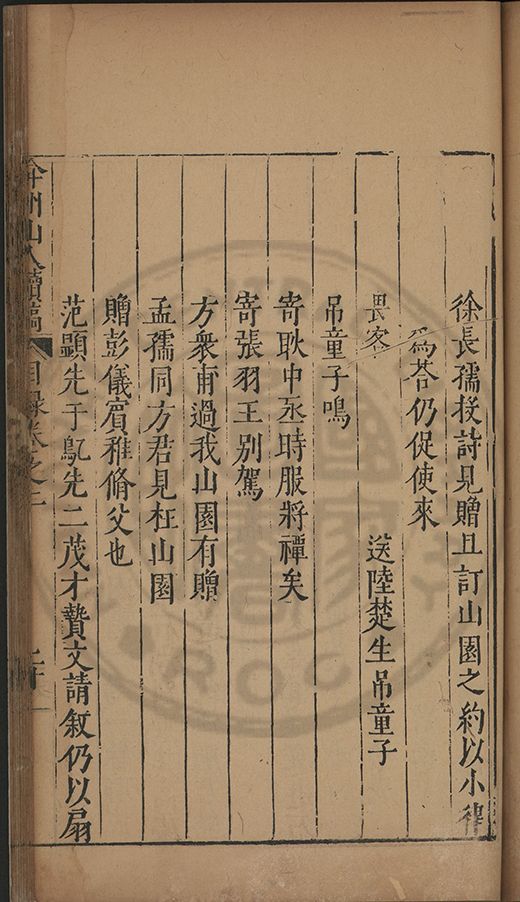 徐長孺投詩見贈且訂山園之約以小律
爲答仍促使來
畏客 送陸楚生吊童子
吊童子鳴
寄耿中丞時服將禫矣
寄張羽王別駕
方衆甫過我山園有贈
孟孺同方君見枉山園
贈彭儀賓稚脩父也
范顯先于鳬先二茂才贄文請叙仍以扇
弇州山人續稿 目録卷之二